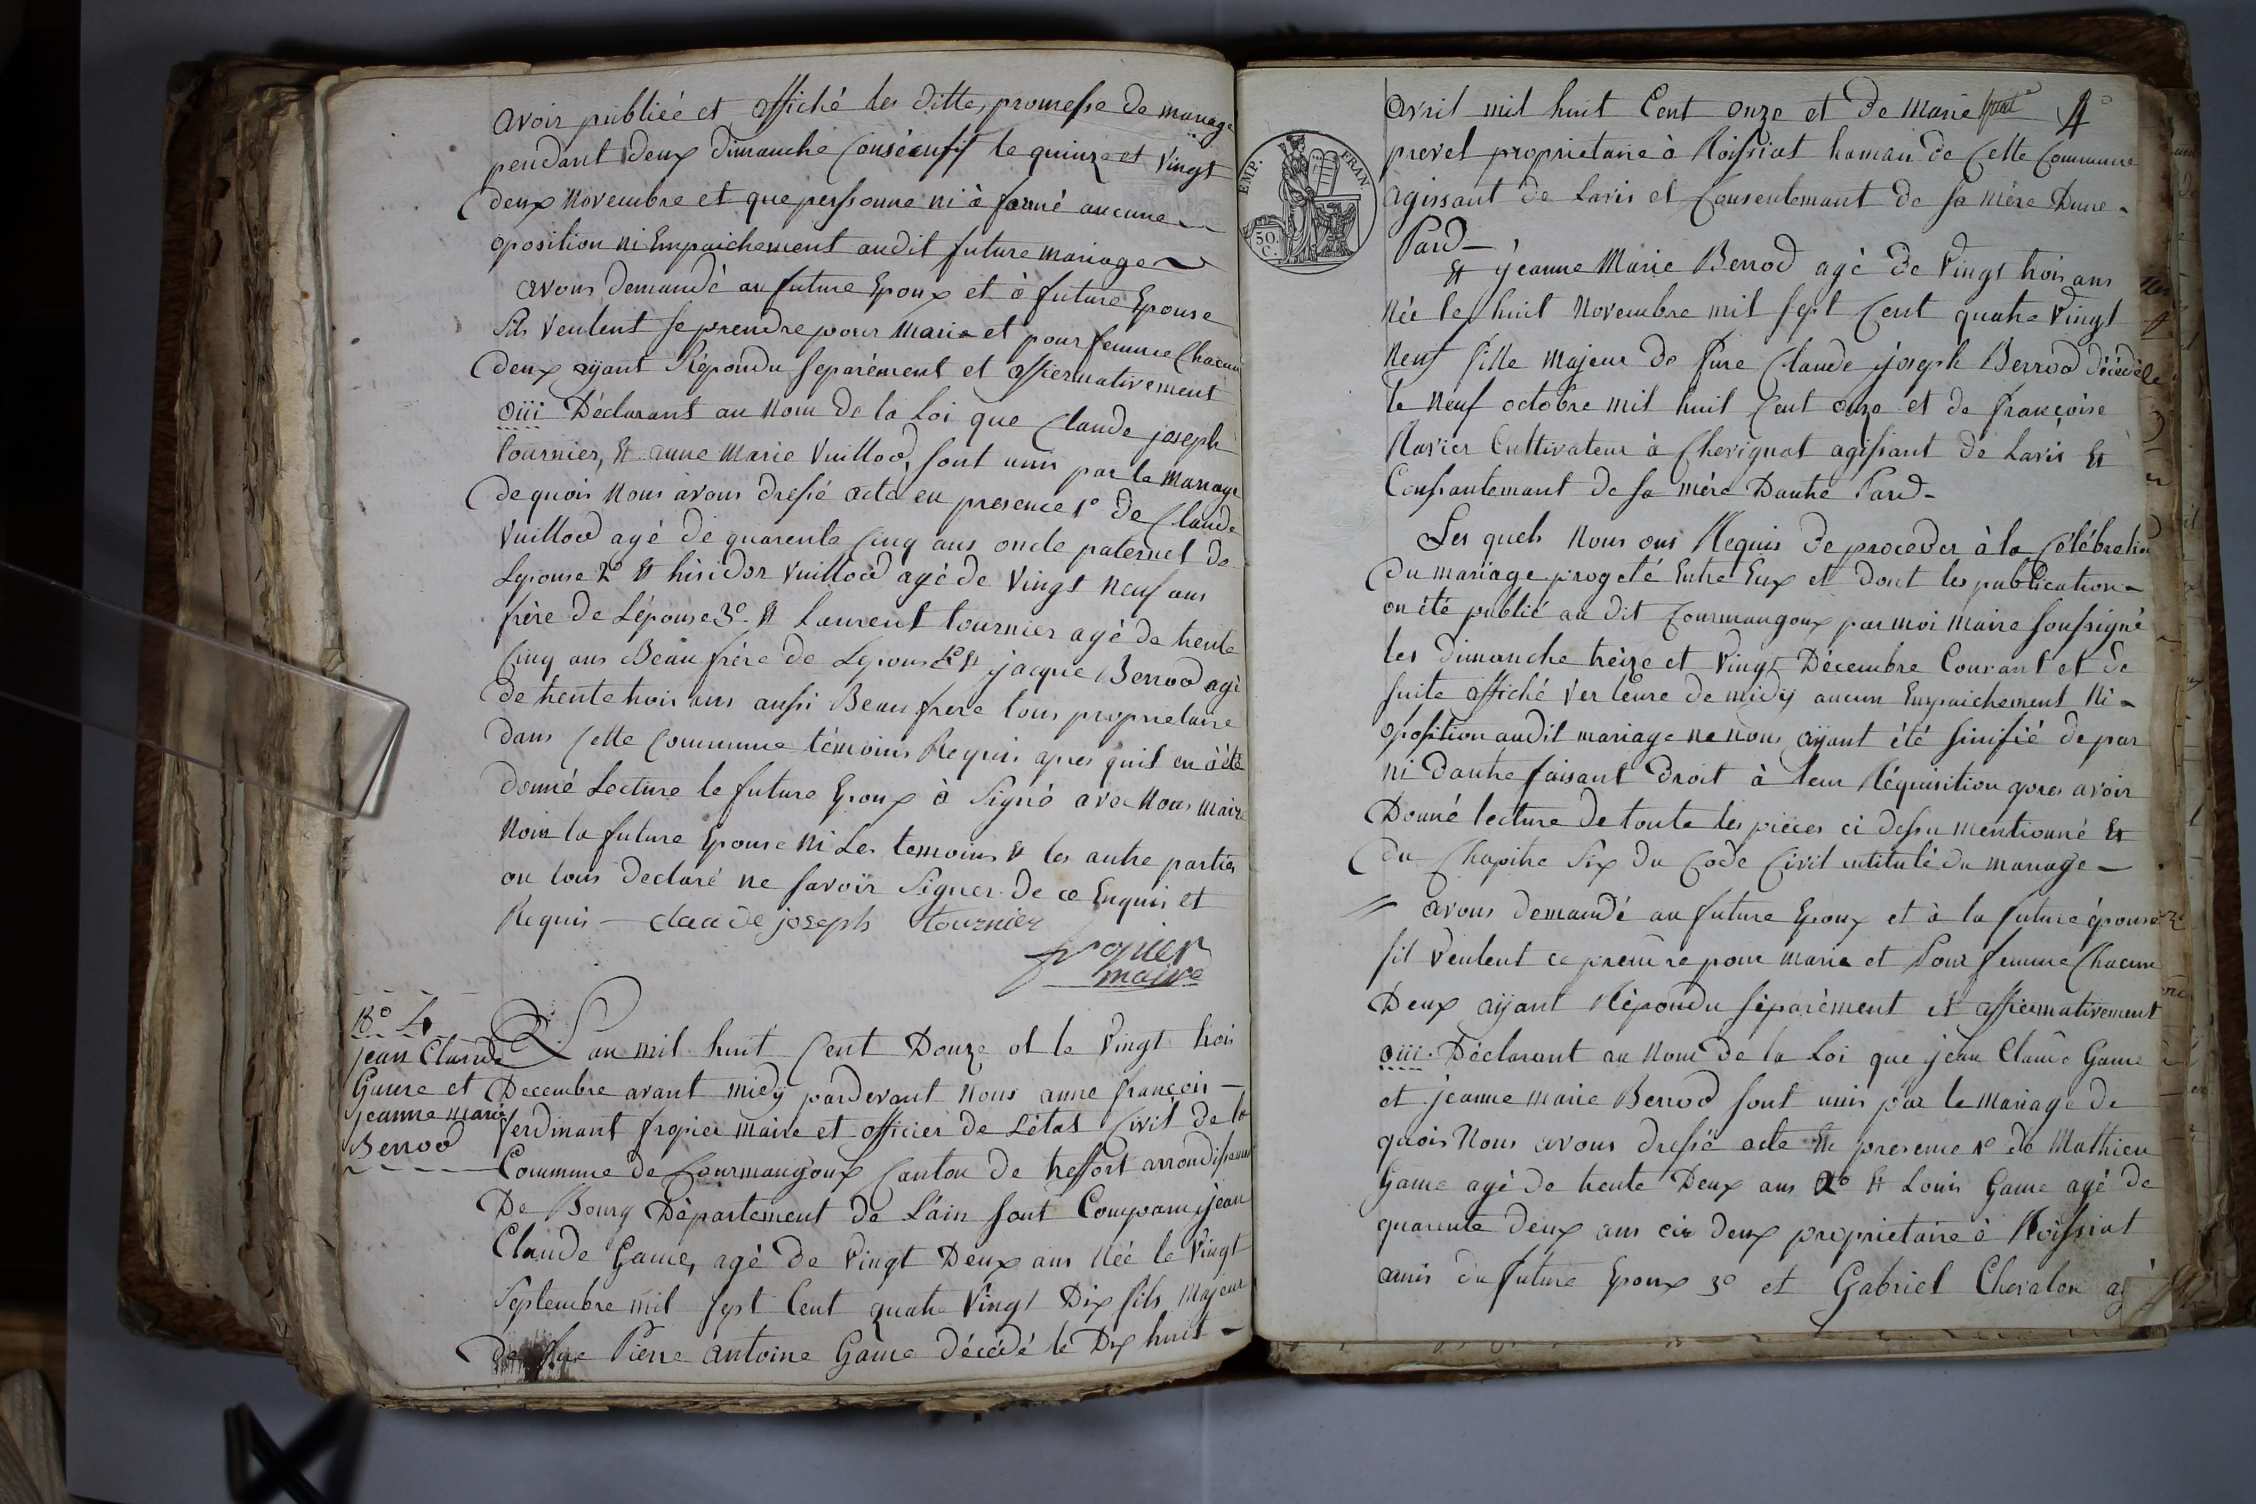 avoir publiéé et affiché les ditte, promesse de mariage
pendant deux dimanche Consécutif le quinze et vingt
deux Novembre et que perssonne ni à formé aucune
oposition ni Empaichement audit future mariage
avons demandé au future Epoux et à future Epouse
Sils veulent se prendre pour Marie et pour femme Chacun
deux ayant Répondu separément et affiermativement
oüi Déclarant au Nom de la Loi que Claude joseph
tournier, Et anne Marie Vuillod, sont unis par le Mariage
de quois Nous avons dressé acte en presence 1° de Claude
Vuillod agé de quarente Cinq ans oncle paternel de
Lepouse 2° Et hisidor Vuillod agé de Vingt Neuf ans
frère de Lépouse 3° Et Laurent tournier agé de trente
Cinq ans Beau frère de Lepouse 4° Et jacque Berrod agé
de trente trois ans aussi Beau frere tous proprietaire
dans Cette Commune témoins Requis apres quil en à été
donné Lecture le future Epoux à Signé avec Nous maire
Noin la future Epouse Ni Les temoins & les autre parties
on tous declaré ne savoir Signer de ce Enquis et
Requis claude joseph tournier
fropier
maire
N° 4
jean Claude
Game et
jeanne marie
Berrod
Lan mil huit Cent Douze et le Vingt trois
Decembre avant midy pardevant Nous anne françois
ferdinant fropier maire et officier de Létat Civil de la
Commune de Courmangoux Canton de treffort arrondissement
De Bourg Département de Lain sont Comparu jean
Claude Game, agé de Vingt Deux ans Née le Vingt
Septembre mil Sept Cent quatre Vingt Dix fils Majeur
de fue Pierre antoine Game décédé le Dix huit
EMP. FRAN
50.
C.
avril mil huit Cent onze et de Marie 4°
prevel proprietaire à Roissiat hamau de Cette Commune
agissant de Lavis et Consentemant de sa mère Dune
Pard
Et jeanne Marie Berrod agé de Vingt trois ans
Née le huit Novembre mil Sept Cent quatre Vingt
Neuf fille majeur de fure Claude joseph Berrod décédé
le Neuf octobre mil huit Cent onze et de françoise
Ravier Cultivateur à Chevignat agissant de Lavis Et
Consantemant de sa mére Dautre Pard
Les quels Nous ons Requis de proceder à la Célébration
du mariage progeté Entre Eux et dont les publication
on été publié au dit Courmangoux par moi maire soussigné
les dimanche trèize et Vingt Décembre Courant et de
suite affiché ver leure de midy aucun Empaichement Ni
oposition audit mariage ne nous ayant été sinifié de par
ni Dautre faisant droit à leur Réquisition apres avoir
Donné lecture de toute les pièces ci dessu mentionné Et
du Chapitre Six du Code Civil intitulé du mariage
avons demandé au future Epoux et à la future épouse
sil veulent ce prendre pour marie et Pour femme Chacun
Deux ayant Répondu séparément et affiermativement
oüi Déclarant au Nom de la Loi que jean Claude Game
et jeanne marie Berrod sont unis par le Mariage de
quois Nous avons dressé acte En presence 1° de Mathieu
Game agé de trente Deux ans 2° Et Louis Game agé de
quarente deux ans les deux proprietaire à Roissiat
amis du future Epoux 3° et Gabriel Chevalon